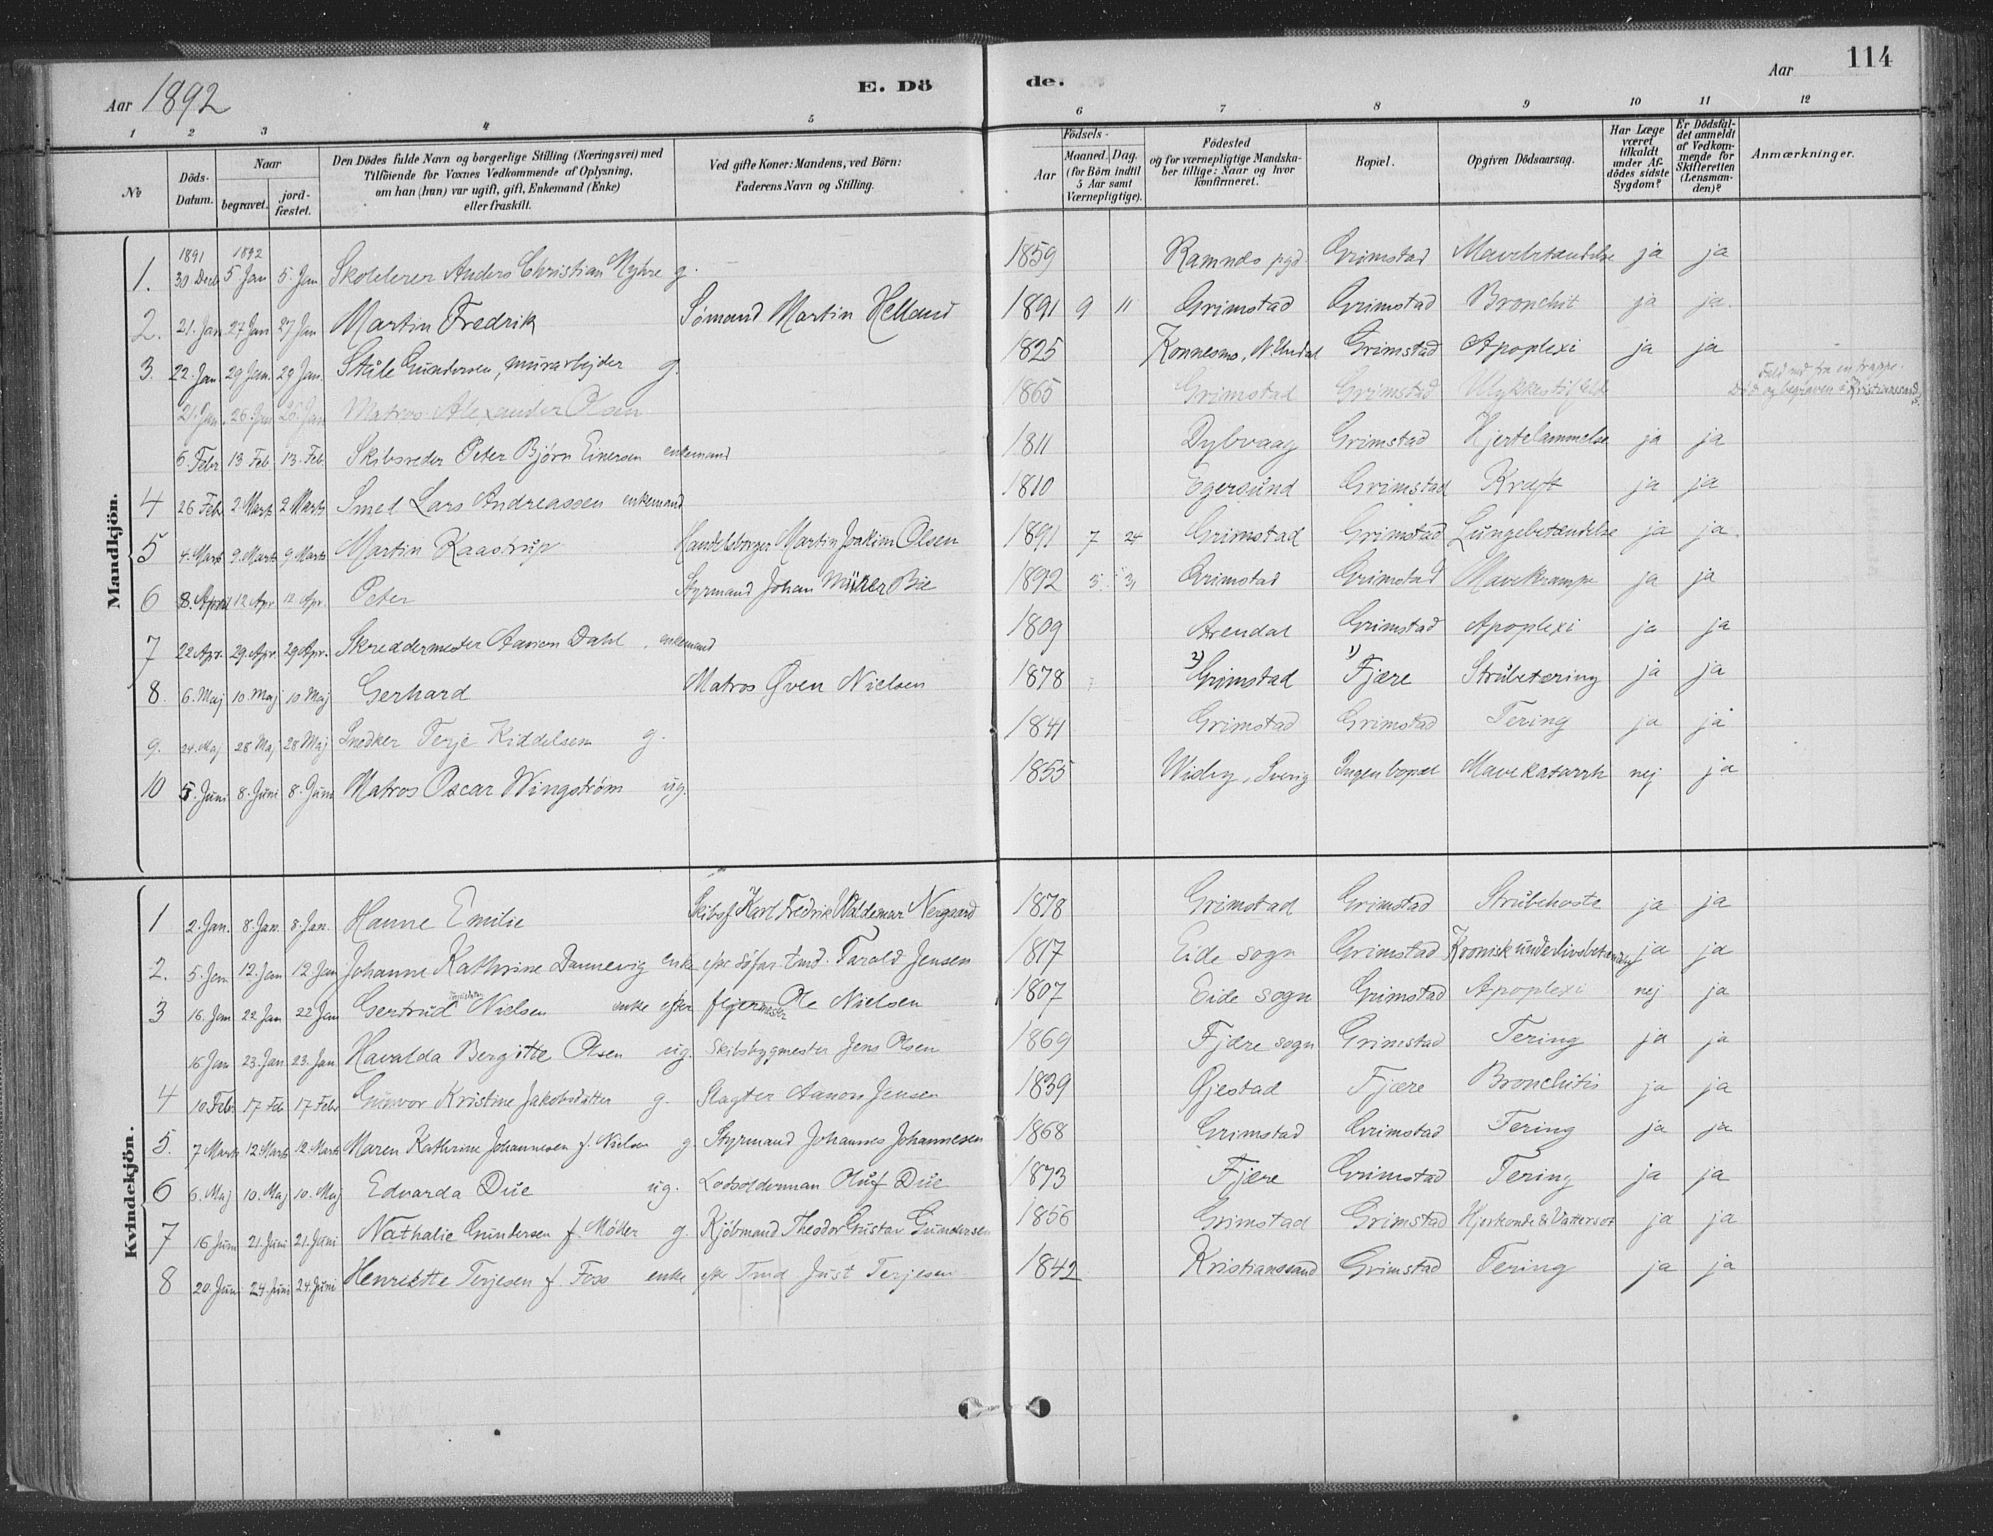 Aar 1892 E. Döde. Aar 114
1 2 3 4 5 6 7 8 9 10 11 12
№ Döds-Datum. Naar begravet. jordfæstet. Den Dödes fulde Navn og borgerlige Stilling (Næringsvei) med Tilföiende for Voxnes Vedkommende af Oplysning, om han (hun) var ugift, gift, Enkemand (Enke) eller fraskilt. Ved gifte Koner: Mandens, ved Börn: Faderens Navn og Stilling. Födsels- Aar Maaned. Dag. (for Börn indtil 5 Aar samt Værnepligtige). Födested og for værnepligtige Mandskaber tillige: Naar og hvor konfirmeret. Bopæl. Opgiven Dödsaarsag. Har Læge været tilkaldt under Afdödes sidste Sygdom? Er Dödsfaldet anmeldt af Vedkommende for Skifteretten (Lensmanden)? Anmærkninger.
Mandkjön.
1891 1892
1. 30 Decb 5 Jan 5. Jan Skolelærer Anders Christian Myhre g. 1859 Ramnes pgd Grimstad Mavebetændelse ja ja
2. 21. Jan 27 Jan 27 Jan Martin Fredrik Sömand Martin Helland 1891 9 11 Grimstad Grimstad Bronchit ja ja.
3. 22. Jan 29 Jan. 29 Jan. Ståle Gundersen, murarbejder g. 1825 Konnesmo, N. Undal Grimstad Apoplexi ja ja
21. Jan. 26. Jan 26. Jan Matros Alexander Olsen 1865 Grimstad Grimstad Ulykkestilfælde Fald ned fra en trappe. Död og begraven i Kristianssand
6 Febr 13 Feb. 13. Feb. Skibsreder Peter Björn Einersen enkemand 1811 Dybvaag Grimstad Hjertelammelse ja ja
4 26 Feb 2 Marts 2 Marts Smed Lars Andreassen enkemand 1810 Egersund Grimstad Kræft ja ja
5 4. Mart 9. Marts 9 Marts Martin Kaastrup Handelsborger Martin Joakim Olsen 1891 7 24 Grimstad Grimstad Lungebetændelse ja ja.
6 8. April 12 Apr 12 Apr. Peter Styrmand Johan Müller Bie 1892 3 31 Grimstad Grimstad Mavekrampe ja ja
7 22 Apr. 29. Apr. 29 Apr. Skreddermester Aanon Dahl. enkemand 1809 Arendal Grimstad Apoplexi ja ja
8. 6. Maj 10. Maj 10 Maj Gerhard Matros Øven Nielsen 1878 2) Grimstad 1) Fjære Strubetæring ja ja
9. 24. Maj 28 Maj 28 Maj Snedker Terje Kiddelsen g. 1841 Grimstad Grimstad Tæring ja ja
10 5. Juni 8. Juni 8. Juni Matros Oscar Wingström ug. 1855 Wisby, Sverig Ingen bopæl Mavekatarrh nej ja
Kvindekjön.
1 2. Jan. 8. Jan. 8. Jan. Hanne Emilie Skibsf Karl Fredrik Waldemar Neugaard 1878 Grimstad Grimstad Strubehoste ja ja
2. 5. Jan 12. Jan 12 Jan Johanne Kathrine Dannevig enke efter söfar. tmd. Tarald Jensen 1817 Eide sogn Grimstad Kronisk underlivsbetændelse ja ja
3 16. Jan 22 Jan 22 Jan Gertrud Nielsen enke efter fejermester Ole Nielsen 1807 Eide sogn Grimstad Apoplexi nej ja
16 Jan 23. Jan 23. Jan Havalda Bergitte Olsen ug. Skibsbygmester Jens Olsen 1869 Fjære sogn Grimstad Tæring ja ja
4 10 Feb 17 Feb 17 Febr Gunvor Kristine Jakobsdatter g. Slagter Aanon Jensen 1839 Øjestad Fjære Bronchitis ja ja
5. 7 Marts 12 Marts 12. Marts Maren Kathrine Johannesen f. Nielsen g. Styrmand Johannes Johannesen 1868 Grimstad Grimstad Tæring ja ja
6 6. Maj 10. Maj 10. Maj Edvarda Due ug. Lodsolderman Oluf Due 1873 Fjære Grimstad Tæring ja ja
7 16 Juni 21. Juni 21. Juni Nathalie Gundersen f. Möller g. Kjöbmand Theodor Gustav Gundersen 1856 Grimstad Grimstad Hjerteonde & Vattersot ja ja
8 20. Juni 24. Juni 24. Juni Henriette Terjesen f. Foss enke efter Tmd Just Terjesen 1842 Kristianssand Grimstad Tæring ja ja